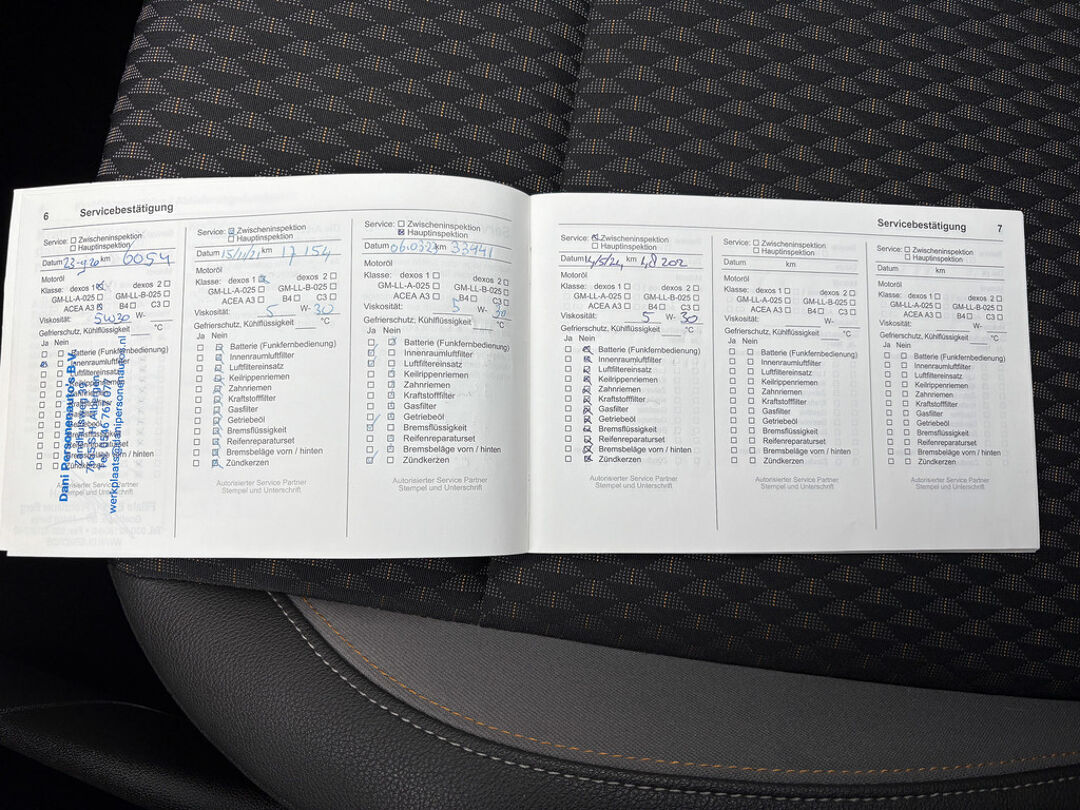 6 Servicebestätigung
Service: Zwischeninspektion
Hauptinspektion
Datum 23-9-20 km 6054
Motoröl
Klasse: dexos 1 dexos 2
GM-LL-A-025 GM-LL-B-025
ACEA A3 B4 C3
Viskosität: 5W30 W-
Gefrierschutz, Kühlflüssigkeit °C
Ja Nein
Batterie (Funkfernbedienung)
Innenraumluftfilter
Luftfiltereinsatz
Keilrippenriemen
Dani Personenauto's B.V.
Tel. 0546 767 077
werkplaats@danipersonenautos.nl
Service: Zwischeninspektion
Hauptinspektion
Datum 15/11/21 km 17 154
Motoröl
Klasse: dexos 1 dexos 2
GM-LL-A-025 GM-LL-B-025
ACEA A3 B4 C3
Viskosität: 5 W-30
Gefrierschutz, Kühlflüssigkeit °C
Ja Nein
Batterie (Funkfernbedienung)
Innenraumluftfilter
Luftfiltereinsatz
Keilrippenriemen
Zahnriemen
Kraftstofffilter
Gasfilter
Getriebeöl
Bremsflüssigkeit
Reifenreparaturset
Bremsbeläge vorn / hinten
Zündkerzen
Autorisierter Service Partner
Stempel und Unterschrift
Service: Zwischeninspektion
Hauptinspektion
Datum 06.03.23 km 33941
Motoröl
Klasse: dexos 1 dexos 2
GM-LL-A-025 GM-LL-B-025
ACEA A3 B4 C3
Viskosität: 5 W-30
Gefrierschutz, Kühlflüssigkeit °C
Ja Nein
Batterie (Funkfernbedienung)
Innenraumluftfilter
Luftfiltereinsatz
Keilrippenriemen
Zahnriemen
Kraftstofffilter
Gasfilter
Getriebeöl
Bremsflüssigkeit
Reifenreparaturset
Bremsbeläge vorn / hinten
Zündkerzen
Autorisierter Service Partner
Stempel und Unterschrift
Servicebestätigung 7
Service: Zwischeninspektion
Hauptinspektion
Datum km 48 202
Motoröl
Klasse: dexos 1 dexos 2
GM-LL-A-025 GM-LL-B-025
ACEA A3 B4 C3
Viskosität: 5 W-30
Gefrierschutz, Kühlflüssigkeit °C
Ja Nein
Batterie (Funkfernbedienung)
Innenraumluftfilter
Luftfiltereinsatz
Keilrippenriemen
Zahnriemen
Kraftstofffilter
Gasfilter
Getriebeöl
Bremsflüssigkeit
Reifenreparaturset
Bremsbeläge vorn / hinten
Zündkerzen
Autorisierter Service Partner
Stempel und Unterschrift
Service: Zwischeninspektion
Hauptinspektion
Datum km
Motoröl
Klasse: dexos 1 dexos 2
GM-LL-A-025 GM-LL-B-025
ACEA A3 B4 C3
Viskosität: W-
Gefrierschutz, Kühlflüssigkeit °C
Ja Nein
Batterie (Funkfernbedienung)
Innenraumluftfilter
Luftfiltereinsatz
Keilrippenriemen
Zahnriemen
Kraftstofffilter
Gasfilter
Getriebeöl
Bremsflüssigkeit
Reifenreparaturset
Bremsbeläge vorn / hinten
Zündkerzen
Autorisierter Service Partner
Stempel und Unterschrift
Service: Zwischeninspektion
Hauptinspektion
Datum km
Motoröl
Klasse: dexos 1 dexos 2
GM-LL-A-025 GM-LL-B-025
ACEA A3 B4 C3
Viskosität: W-
Gefrierschutz, Kühlflüssigkeit °C
Ja Nein
Batterie (Funkfernbedienung)
Innenraumluftfilter
Luftfiltereinsatz
Keilrippenriemen
Zahnriemen
Kraftstofffilter
Gasfilter
Getriebeöl
Bremsflüssigkeit
Reifenreparaturset
Bremsbeläge vorn / hinten
Zündkerzen
Autorisierter Service Partner
Stempel und Unterschrift